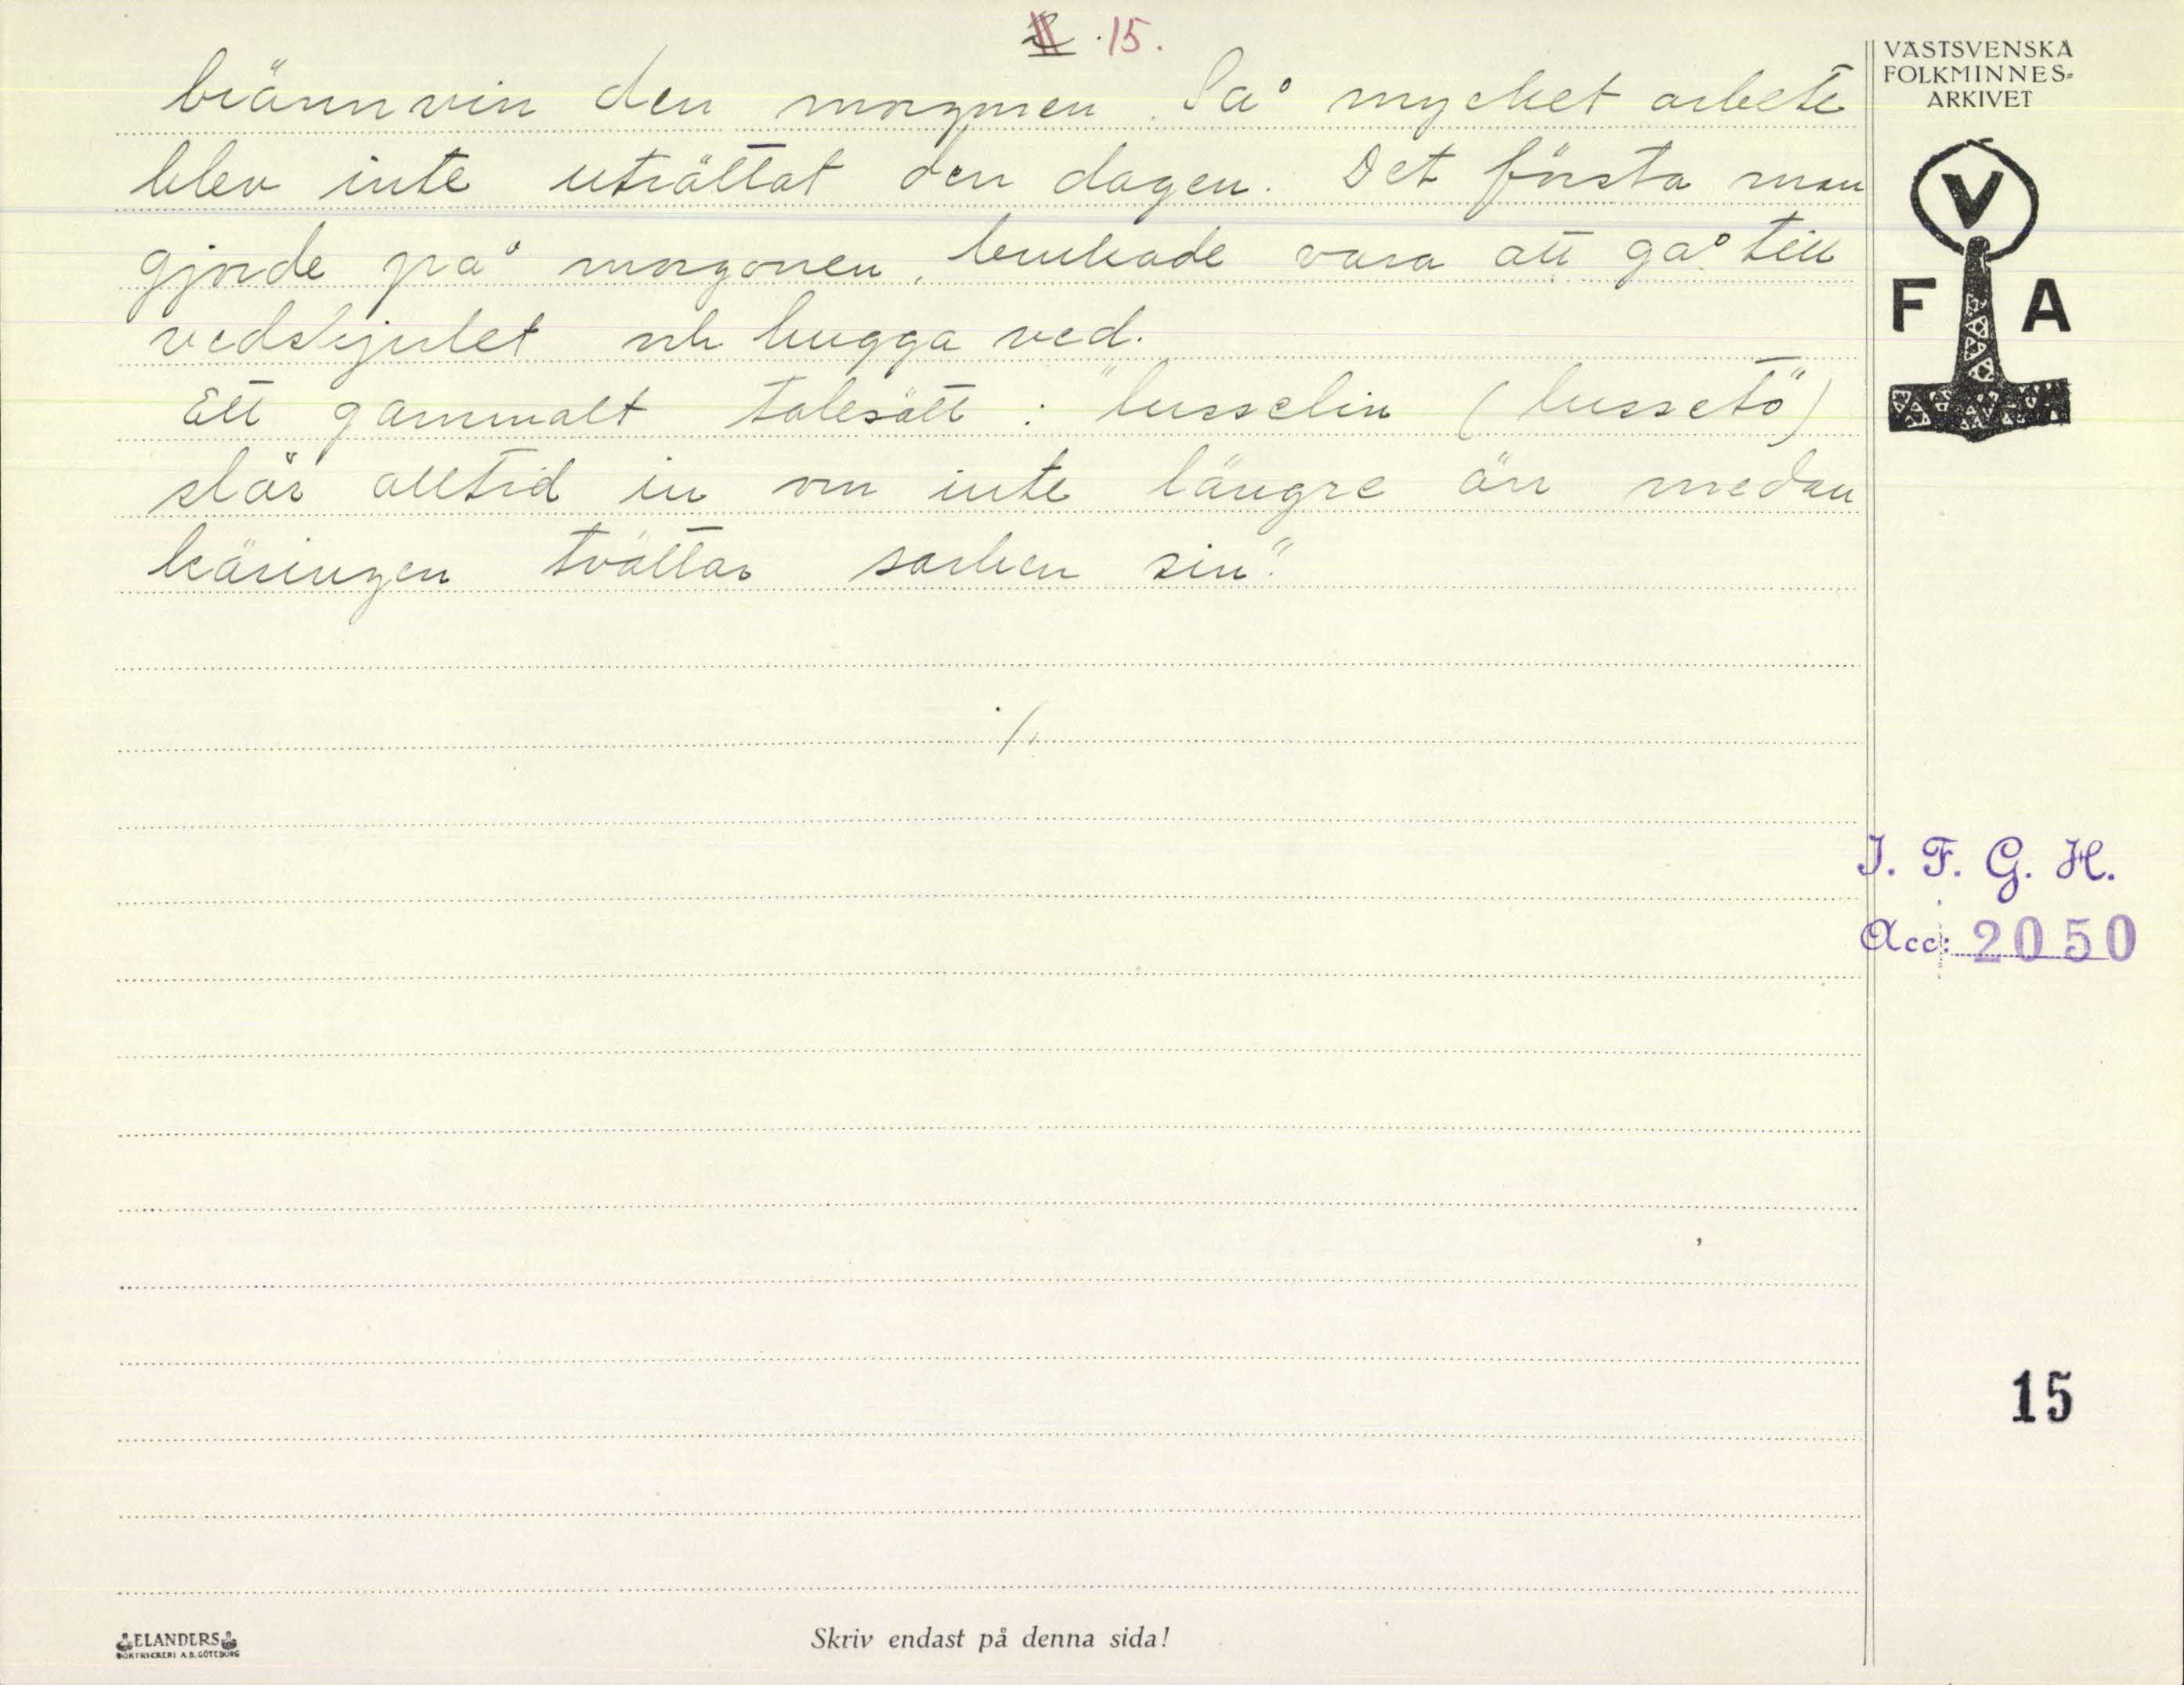 15.
VÄSTSVENSKA
FOLKMINNES-
ARKIVET
brännvin den morgonen. Så mycket arbete
blev inte uträttat den dagen. Det första man
gjorde på morgonen, brukade vara att gå till
vedskjulet och hugga ved.
Ett gammalt talesätt: "lusselin (lussetö)
slår alltid in om inte längre än medan
käringen tvättar sarken sin."
V
F A
./.
I. F. G. H.
Acc: 2050
15
ELANDERS
BOKTRYCKERI A.B. GÖTEBORG
Skriv endast på denna sida!